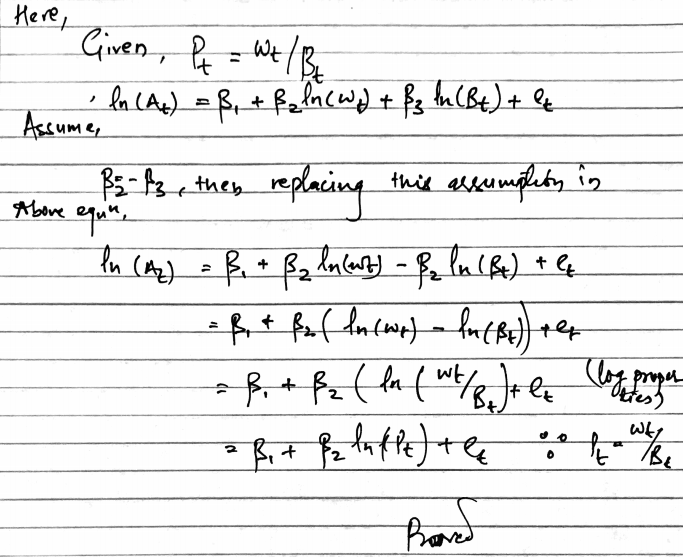 Here,
Given, P_t = W_t/B_t
ln(A_t) = β_1 + β_2 ln(W_t) + β_3 ln(B_t) + e_t
Assume,
β_2 = -β_3, then replacing this assumption in
Above equn,
ln(A_t) = β_1 + β_2 ln(W_t) - β_2 ln(B_t) + e_t
= β_1 + β_2 ( ln(W_t) - ln(B_t)) + e_t
= β_1 + β_2 ( ln ( W_t/B_t ) + e_t (log properties)
= β_1 + β_2 ln(P_t) + e_t ∵ P_t = W_t/B_t
Proved